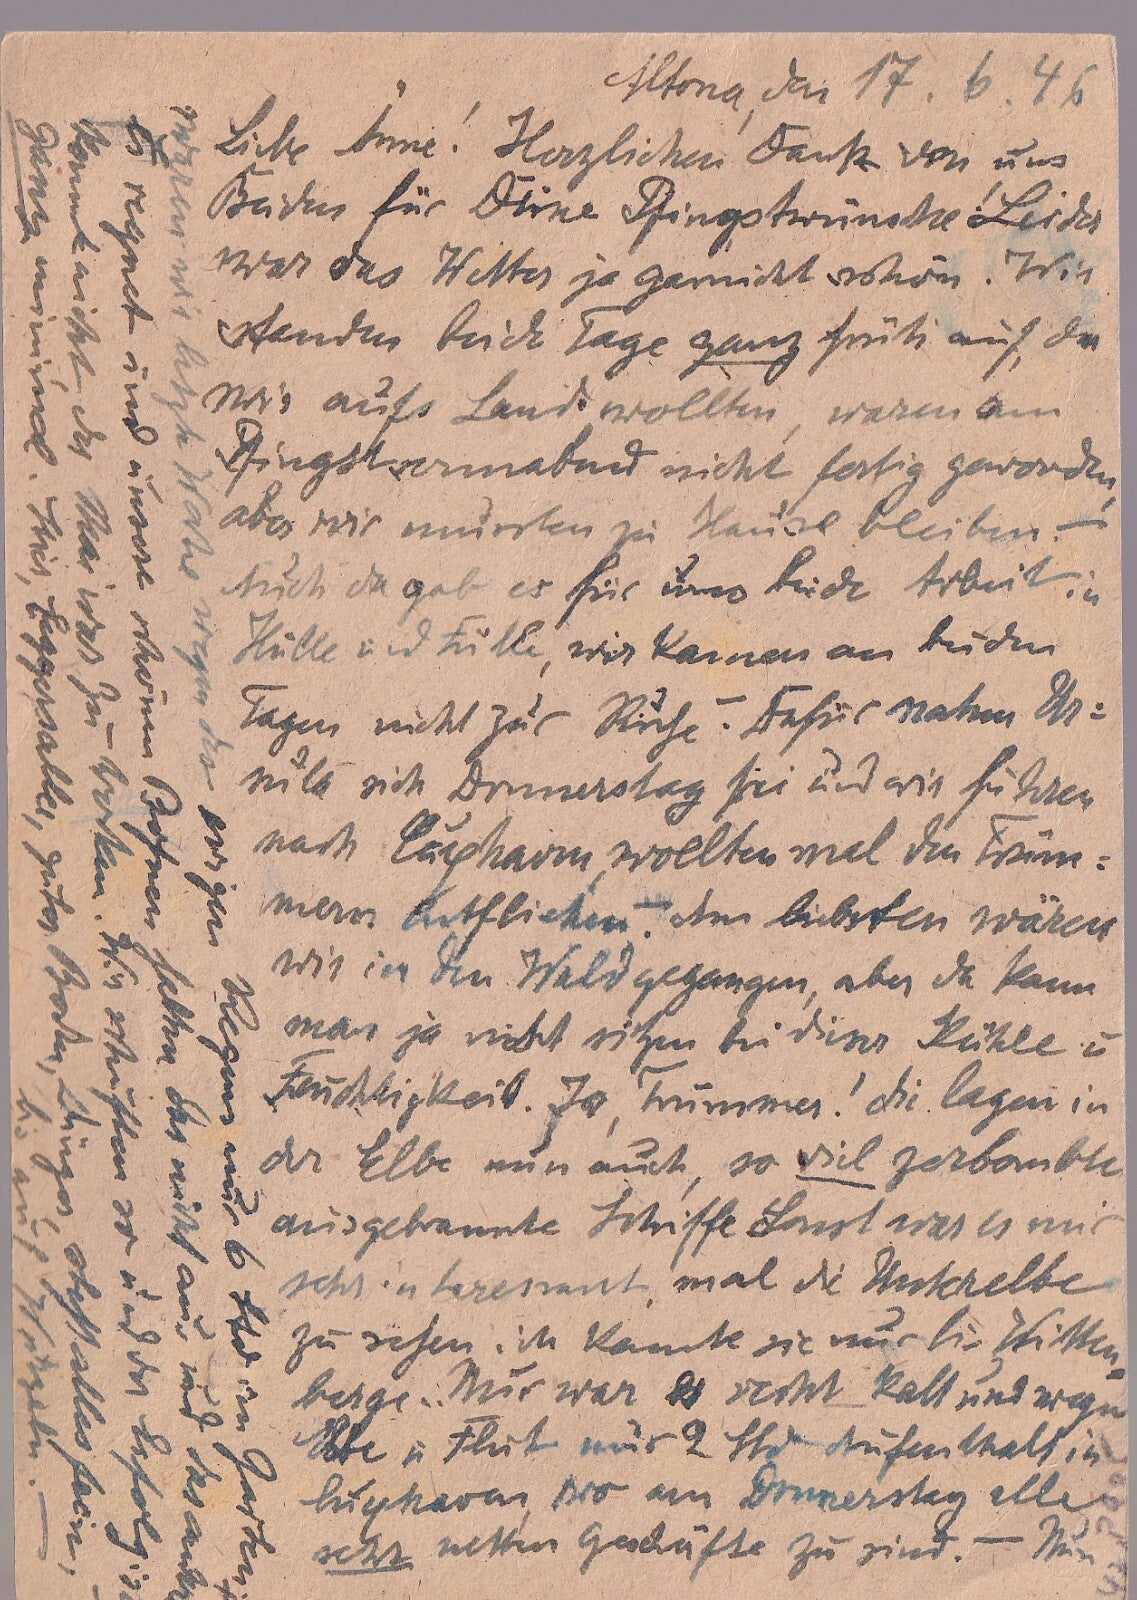 Altona, den 17.6.46
Liebe Änne! Herzlichen Dank von uns
Beiden für Deine Pfingstwünsche! Leider
war das Wetter ja garnicht schön. Wir
standen beide Tage ganz früh auf, da
wir aufs Land wollten, waren am
Pfingstsonnabend nicht fertig geworden,
aber wir mussten zu Hause bleiben. —
Auch da gab es für uns beide Arbeit in
Hülle und Fülle, wir kamen an beiden
Tagen nicht zur Ruhe. — Dafür nahm Ur=
sich Donnerstag frei und wir fuhren
nach Cuxhaven, wollten mal den Trüm=
mern entfliehen. — Am liebsten wären
wir in den Wald gegangen, aber da kann
man ja nicht sitzen bei dieser Kühle u
Feuchtigkeit. Ja, Trümmer! die lagen in
der Elbe nun auch, so viel zerbombte
ausgebrannte Schiffe. Sonst war es mir
sehr interessant, mal die Unterelbe
zu sehen, ich kannte sie nur bis Witten=
berge. Nur war es recht kalt und wegen
Ebbe u Flut nur 2 Std Aufenthalt in
Cuxhaven, wo am Donnerstag alle
sehr netten Geschäfte zu sind. — Nun
waren wir letzte Woche wegen des ewigen Regens nur 6 Std im Garten
Es regnet und unsere schönen Bohnen halten das nicht aus und das andere
kommt nicht, der Mai war zu trocken. Wir schuften so und der Erfolg ist
ganz minimal. Hier, guter Boden, Dünger, obs alles fein,
bis auf Wurzeln. —